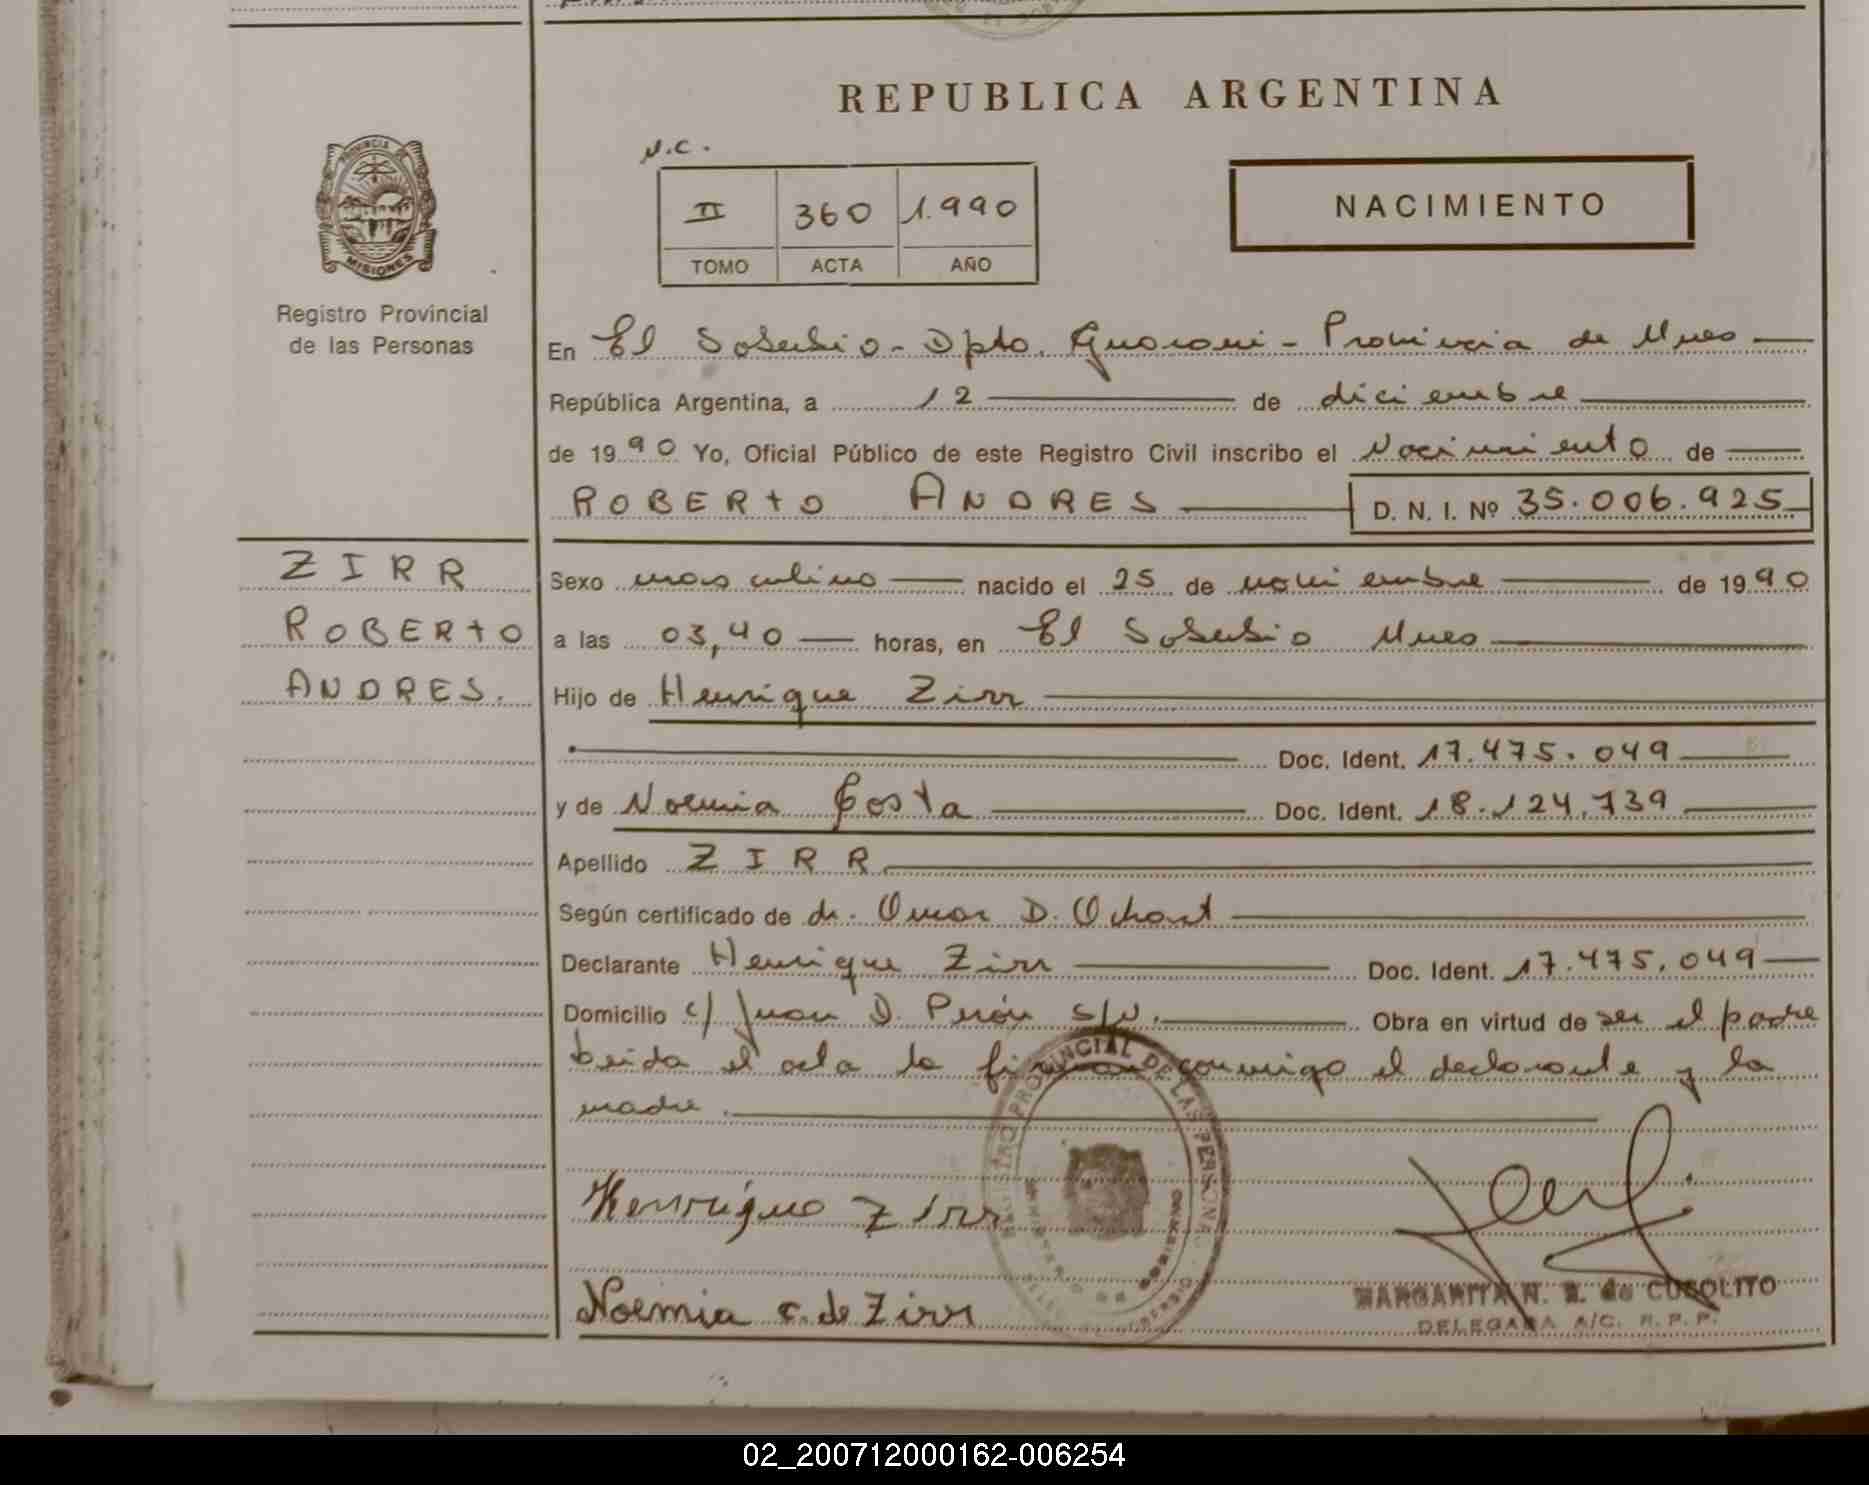 REPUBLICA ARGENTINA
N.C.
II 360 1.990
TOMO ACTA AÑO
NACIMIENTO
PROVINCIA DE
MISIONES
Registro Provincial
de las Personas
En El Soberbio - Dpto. Guarani - Provincia de Mnes
República Argentina, a 12 de diciembre
de 1990 Yo, Oficial Público de este Registro Civil inscribo el Nacimiento de
ROBERTO ANDRES D. N. I. Nº 35.006.925
ZIRR
ROBERTO
ANDRES.
Sexo masculino nacido el 25 de noviembre de 1990
a las 03,40 horas, en El Soberbio Mnes
Hijo de Henrique Zirr
Doc. Ident. 17.475.049
y de Noemia Costa Doc. Ident. 18.124.739
Apellido ZIRR
Según certificado de dr. Omar D.
Declarante Henrique Zirr Doc. Ident. 17.475.049
Domicilio c/ Juan D. Perón s/n. Obra en virtud de ser el padre
Leida el acta la firman conmigo el declarante y la
madre.
Henrique Zirr
Noemia C. de Zirr
PROVINCIAL DE LAS PERSONAS
MARGARITA N. de CUSOLITO
DELEGADA A/C. R. P. P.
02_200712000162-006254